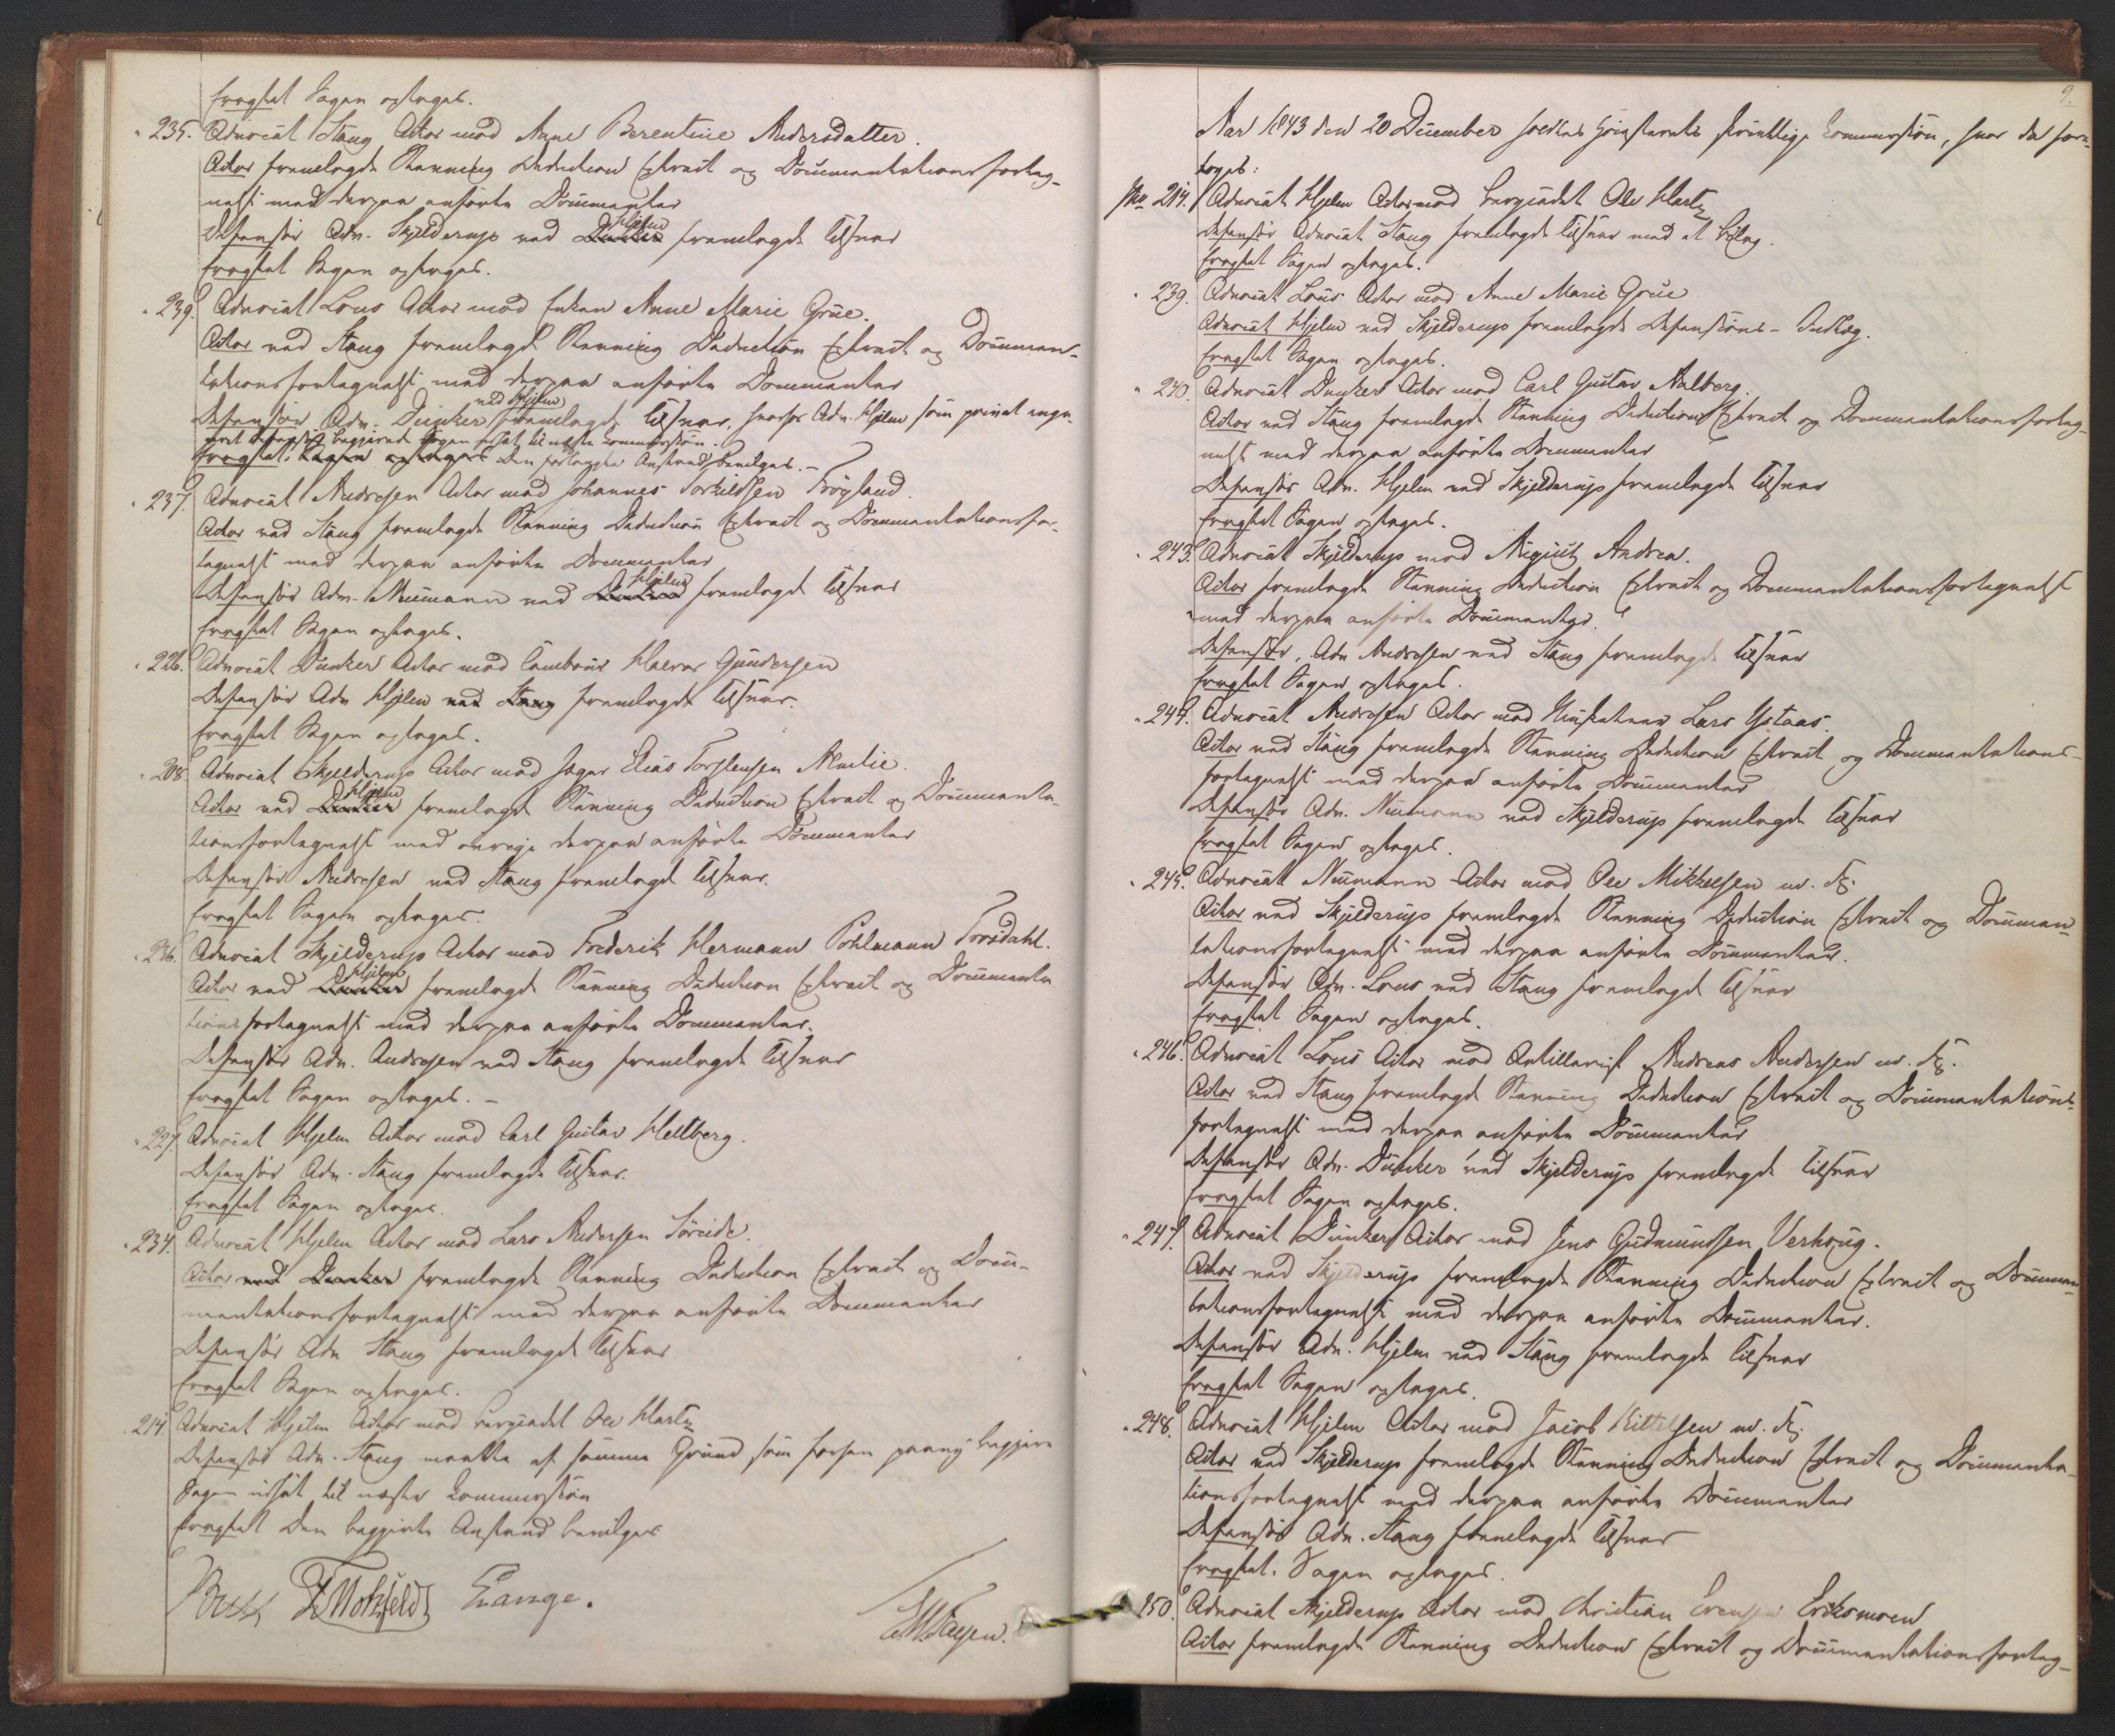 fragtet Sagen optages.
" 235. Advocat Stang Actor mod Anne Berentine Andersdatter.
Actor fremlagde Stævning Deduction Extract og Documentationsforteg-
nelse med derpaa anførte Documenter
Defensor Adv. Skjelderup ved Dunker Hjelm fremlagde Tilsvar
Sagen optages.
" 239. Advocat Lous Actor mod Enken Anne Marie Grue.
Actor ved Stang fremlagde Stævning Deduction Extract og Documen-
tationsfortegnelse med derpaa anførte Documenter
Defensor Adv. Dunker ved Hjelm fremlagde Tilsvar, hvorfor Adv. Hjelm som privat enga-
geret Defensor begjærede Sagen udsat til næste Commission.
Sagen optages Den forlangte Anstand bevilges. -
" 237. Advocat Andresen Actor mod Johannes Torkildsen Frøyland.
Actor ved Stang fremlagde Stævning Deduction Extract og Documentationsfor-
tegnelse med derpaa anførte Documenter
Defensor Adv. Neumann ved Dunker Hjelm fremlagde Tilsvar
Sagen optages.
" 226. Advocat Dunker Actor mod Tambour Halvor Gundersen
Defensor Adv Hjelm ved Stang fremlagde Tilsvar.
Sagen optages.
" 208. Advocat Skjelderup Actor mod Jæger Elias Torstensen
Actor ved Dunker Hjelm fremlagde Stævning Deduction Extract og Documenta-
tionsfortegnelse med øvrige derpaa anførte Documenter
Defensor Andresen ved Stang fremlagde Tilsvar.
Sagen optages.
" 236. Advocat Skjelderup Actor mod Frederik Hermann Pohlmann Trosdahl.
Actor ved Dunker Hjelm fremlagde Stævning Deduction Extract og Documenta
tionsfortegnelse med derpaa anførte Documenter.
Defensor Adv. Andresen ved Stang fremlagde Tilsvar
Sagen optages. -
" 227. Advocat Hjelm Actor mod Carl Gustav Hellberg.
Defensor Adv. Stang fremlagde Tilsvar.
Sagen optages.
" 234. Advocat Hjelm Actor mod Lars Andersen Søreide.
Actor ved Dunker fremlagde Stævning Deduction Extract og Docu-
mentationsfortegnelse med derpaa anførte Documenter
Defensor Adv Stang fremlagde Tilsvar
Sagen optages.
" 214. Advocat Hjelm Actor mod Bergcadet Ole Hartz
Defensor Adv. Stang maatte af samme Grund som forhen paany begjære
Sagen udsat til næste Commission
Den begjærte Anstand bevilges
Bull F Motzfeldt Lange.
9.
Aar 1843 den 20 December holdtes Høiesterets skriftlige Commission, hvor da fore-
toges:
No 214. Advocat Hjelm Actor mod Bergcadet Ole Hartz
Defensor Advocat Stang fremlagde Tilsvar med et Bilag.
Sagen optages.
" 239. Advocat Lous Actor mod Anne Marie Grue
Advocat Hjelm ved Skjelderup fremlagde Defensions-Indlæg.
Sagen optages.
" 240. Advocat Dunker Actor mod Carl Gustav Aalberg.
Actor ved Stang fremlagde Stævning Deduction Extract og Documentationsforteg-
nelse med derpaa anførte Documenter
Defensor Adv. Hjelm ved Skjelderup fremlagde Tilsvar
Sagen optages.
" 243. Advocat Skjelderup mod August Andrea.
Actor fremlagde Stævning Deduction Extract og Documentationsfortegnelse
med derpaa anførte Documenter.
Defensor, Adv Andresen ved Stang fremlagde Tilsvar
Sagen optages.
" 244. Advocat Andresen Actor mod Musketeer Lars Ystaas.
Actor ved Stang fremlagde Stævning Deduction Extract og Documentations-
fortegnelse med derpaa anførte Documenter
Defensor Adv. Neumann ved Skjelderup fremlagde Tilsvar
Sagen optages.
" 245. Advocat Neumann Actor mod Ole Mikkelsen m. fl.
Actor ved Skjelderup fremlagde Stævning Deduction Extract og Documen-
tationsfortegnelse med derpaa anførte Documenter.
Defensor Adv. Lous ved Stang fremlagde Tilsvar
Sagen optages.
" 246. Advocat Lous Actor mod Artillerist Andreas Andersen m. fl.
Actor ved Stang fremlagde Stævning Deduction Extract og Documentations-
fortegnelse med derpaa anførte Documenter
Defensor Adv. Dunker ved Skjelderup fremlagde Tilsvar
Sagen optages.
" 247. Advocat Dunker Actor mod Jens Gudmundsen Verhoug.
Actor ved Skjelderup fremlagde Stævning Deduction Extract og Documen-
tationsfortegnelse med derpaa anførte Documenter.
Defensor Adv. Hjelm ved Stang fremlagde Tilsvar
Sagen optages.
" 248. Advocat Hjelm Actor mod Jacob Kittelsen m. fl.
Actor ved Skjelderup fremlagde Stævning Deduction Extract og Documenta-
tionsfortegnelse med derpaa anførte Documenter
Defensor Adv. Stang fremlagde Tilsvar
Sagen optages.
250. Advocat Skjelderup Actor mod Christian Evensen Eriksmoen
Actor fremlagde Stævning Deduction Extract og Documentationsforteg-